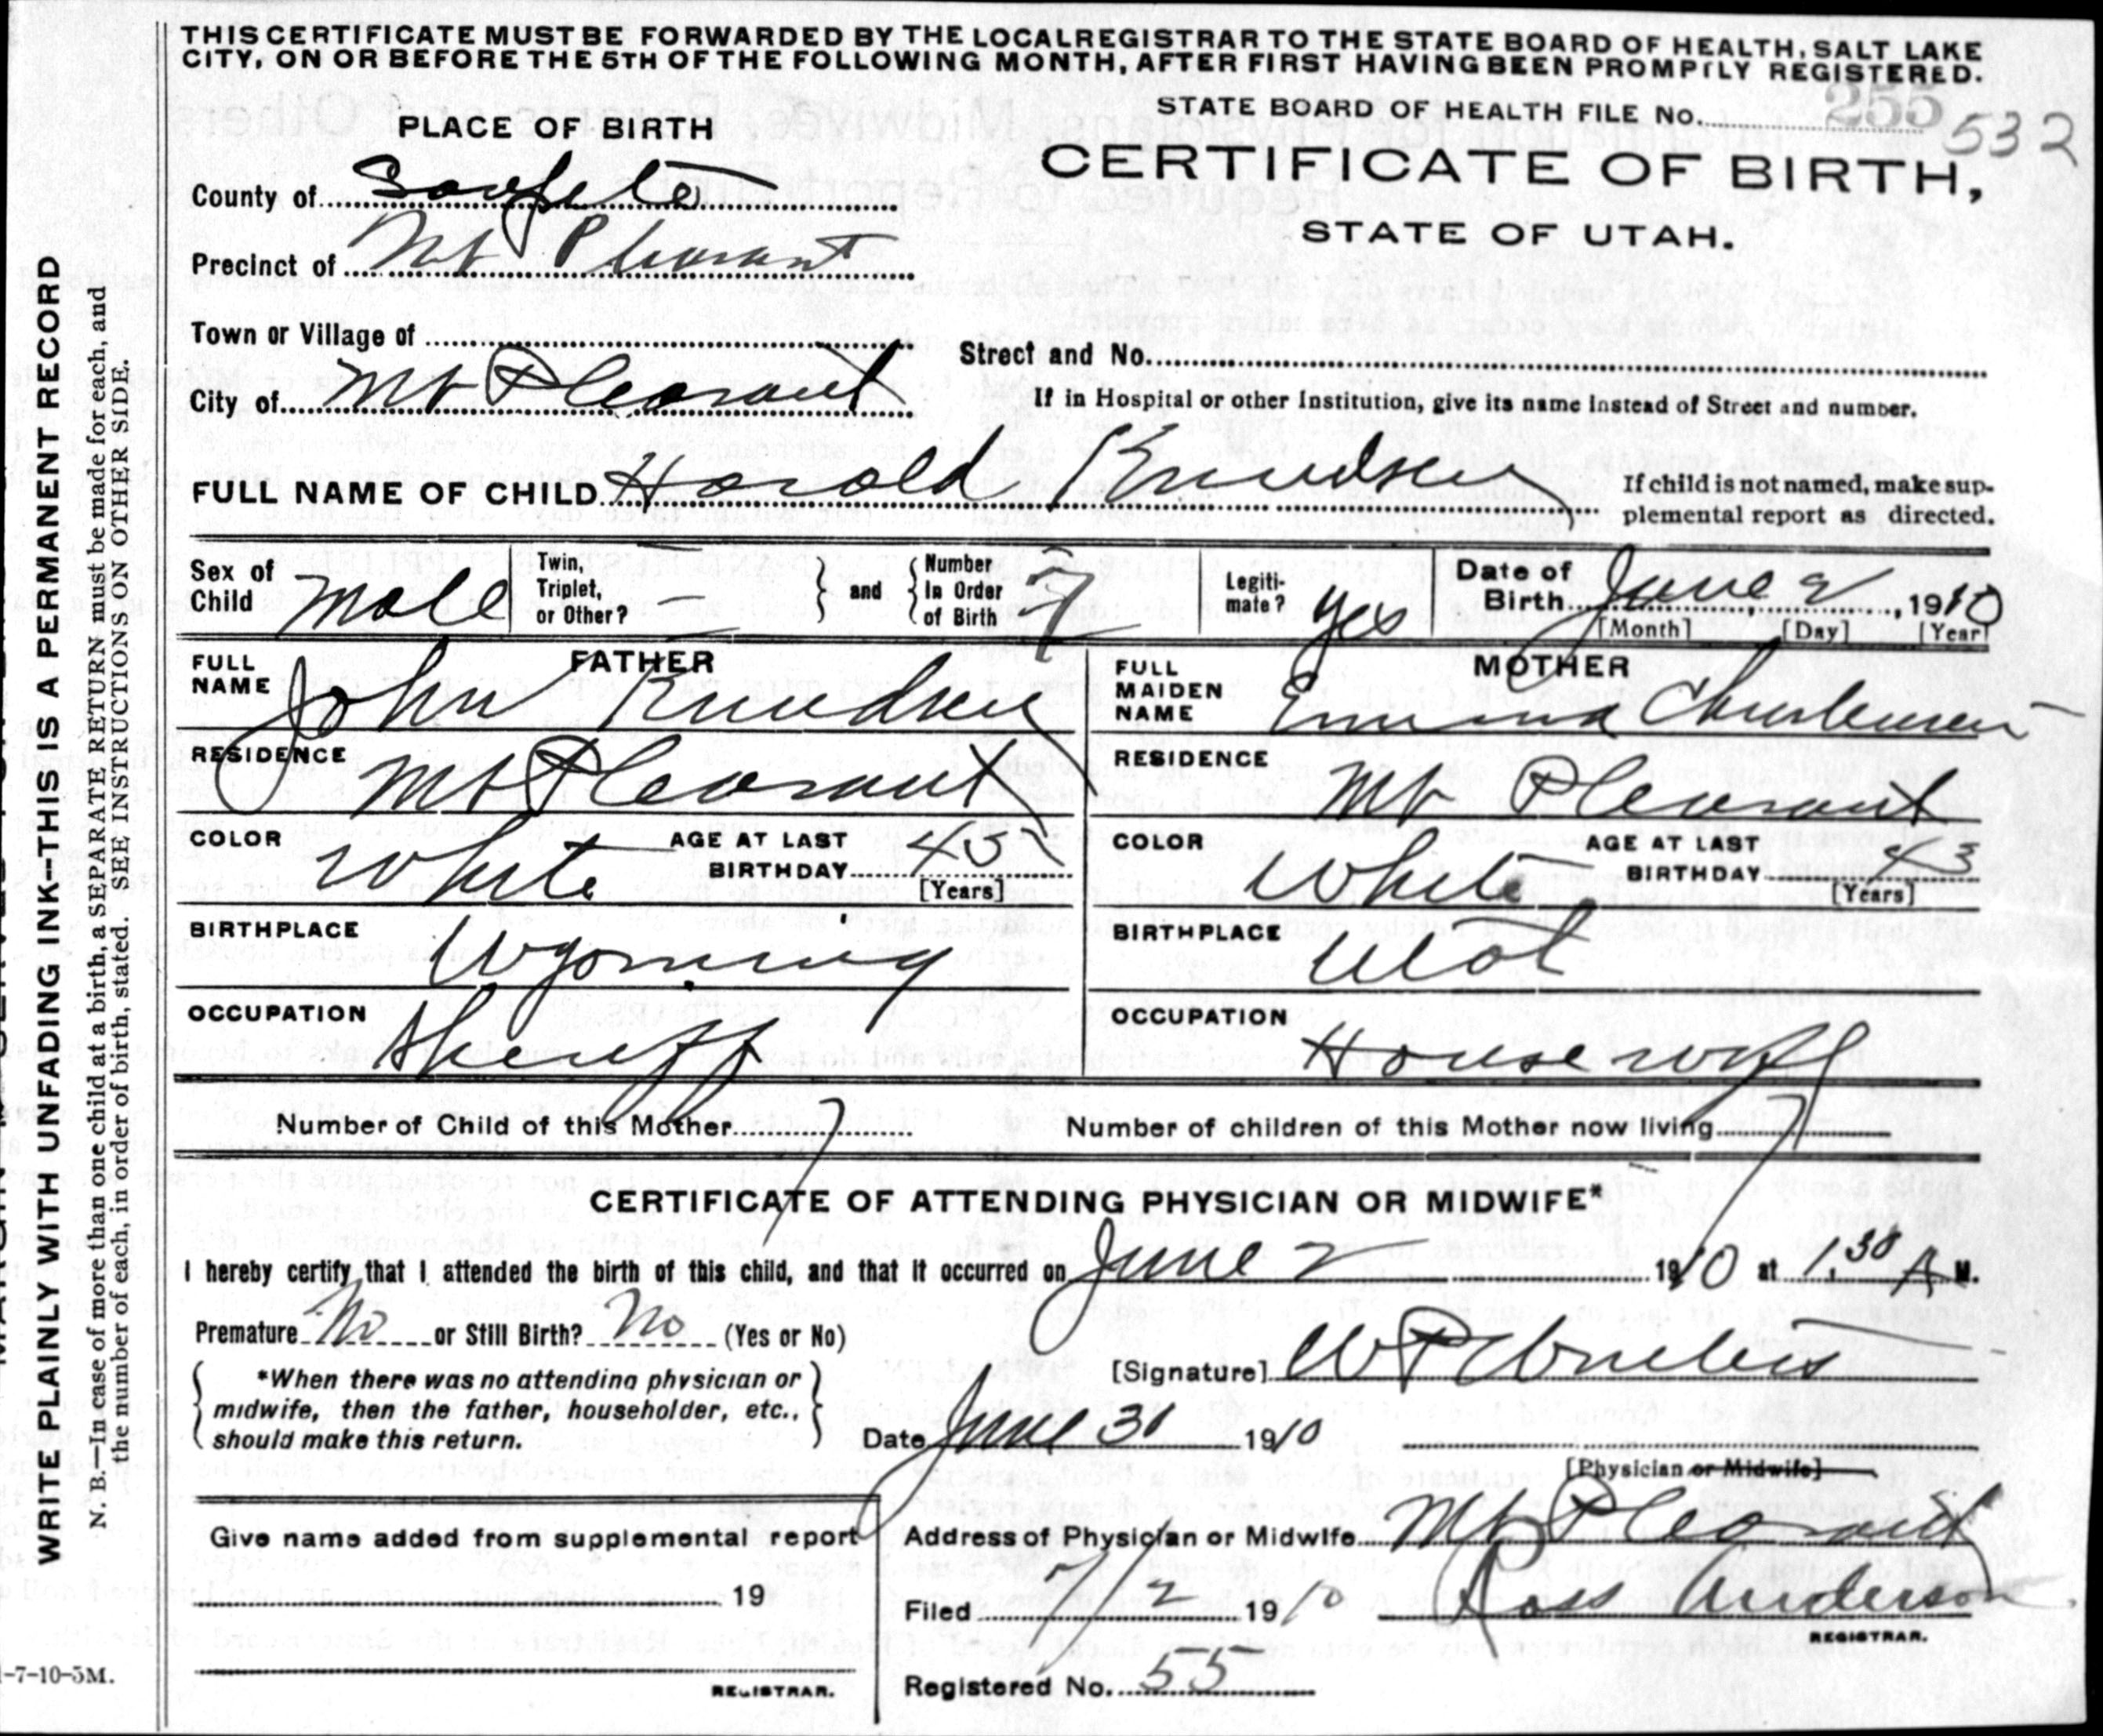 THIS CERTIFICATE MUST BE FORWARDED BY THE LOCAL REGISTRAR TO THE STATE BOARD OF HEALTH, SALT LAKE
CITY, ON OR BEFORE THE 5TH OF THE FOLLOWING MONTH, AFTER FIRST HAVING BEEN PROMPTLY REGISTERED.
STATE BOARD OF HEALTH FILE No. 255 532
PLACE OF BIRTH
CERTIFICATE OF BIRTH,
STATE OF UTAH.
County of Sanpete
Precinct of Mt Pleasant
Town or Village of
Street and No.
City of Mt Pleasant
If in Hospital or other Institution, give its name instead of Street and number.
FULL NAME OF CHILD Harold Knudsen
If child is not named, make sup-
plemental report as directed.
Sex of Child Male
Twin, Triplet, or Other? –
and
Number In Order of Birth 7
Legiti-mate? yes
Date of Birth June 2, 1910
[Month] [Day] [Year]
FATHER
FULL NAME John Knudsen
RESIDENCE Mt Pleasant
COLOR White AGE AT LAST BIRTHDAY 45 [Years]
BIRTHPLACE Wyoming
OCCUPATION Sheriff
MOTHER
FULL MAIDEN NAME Emma Christensen
RESIDENCE Mt Pleasant
COLOR White AGE AT LAST BIRTHDAY 43 [Years]
BIRTHPLACE Utah
OCCUPATION Housewife
Number of Child of this Mother 7
Number of children of this Mother now living 7
CERTIFICATE OF ATTENDING PHYSICIAN OR MIDWIFE*
I hereby certify that I attended the birth of this child, and that it occurred on June 2 1910 at 1.30 A M.
Premature No or Still Birth? No (Yes or No)
*When there was no attending physician or
midwife, then the father, householder, etc.,
should make this return.
[Signature] W P
Date June 30 1910
[Physician or Midwife]
Address of Physician or Midwife Mt Pleasant
Give name added from supplemental report
19
REGISTRAR.
Filed 7/2 1910 Ross Anderson
REGISTRAR.
Registered No. 55
WRITE PLAINLY WITH UNFADING INK--THIS IS A PERMANENT RECORD
N. B.—In case of more than one child at a birth, a SEPARATE RETURN must be made for each, and
the number of each, in order of birth, stated. SEE INSTRUCTIONS ON OTHER SIDE.
-7-10-5M.